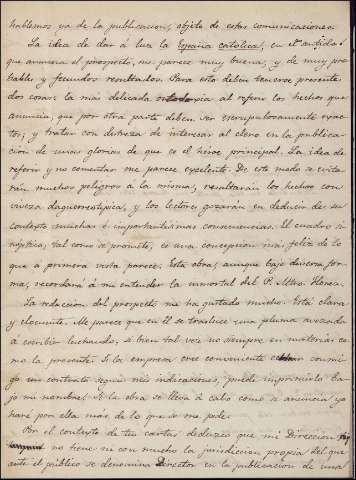 hablemos ya de la publicacion, objeto de estas comunicaciones.
La idea de dar á luz la España católica, en el sentido q.
que anuncia el prospecto, me parece muy buena, y de muy pro-
bables y fecundos resultados. Para esto deben tenerse presente
dos cosas: la mas delicada al referir los hechos que
anuncia, que por otra parte deben ser escrupulosamente exac-
tos; y tratar con destreza de interesar al clero en la publica-
cion de unas glorias de que es el héroe principal. La idea de
referir y no comentar me parece excelente. De este modo se evita-
rán muchos peligros á la misma, resaltarán los hechos con
viveza daguerreotípica, y los lectores gozarán en deducir de su
contexto muchas é importantísimas consecuencias. El cuadro si-
nóptico, tal como se promete, es una concepcion mas feliz de lo
que a primera vista parece. Esta obra, aunque bajo diversa for-
ma, recordará á mi entender la inmortal del P. Mtro. Florez.
La redaccion del prospecto me ha gustado mucho. Está clara
y elocuente. Me parece que en él se trasluce una pluma avezada
á escribir luchando, si bien tal vez no siempre en materias co-
mo la presente. Si la empresa cree conveniente con mi-
go en contexto segun mis indicaciones, puede imprimirlo ba-
jo mi nombre. Si la obra se lleva á cabo como se anuncia yo
haré por ella más de lo que se me pide.
Por el contexto de tus cartas deduzco que mi Direccion
no tiene ni con mucho la jurisdiccion propia del que
ante el público se denomina Director en la publicacion de una